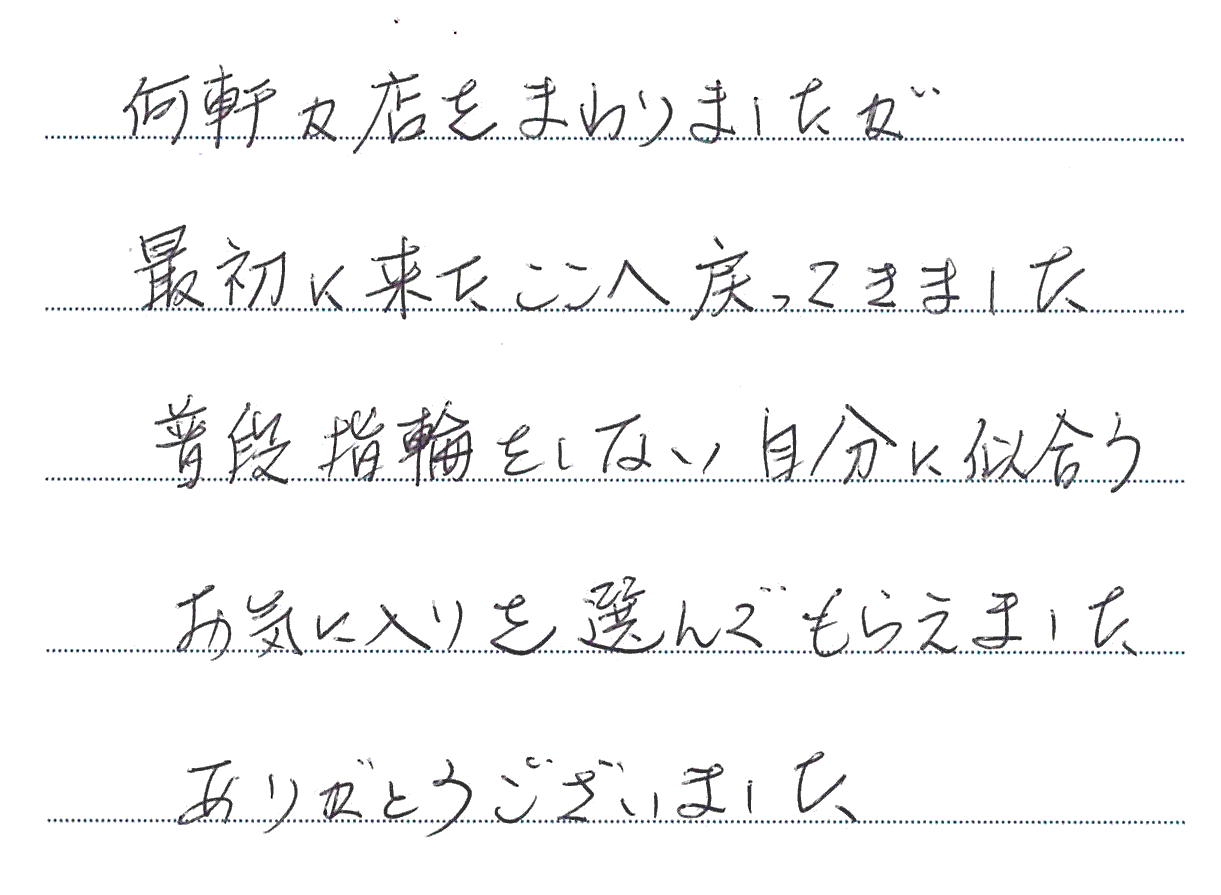 何軒か店をまわりましたが
最初に来たここへ戻ってきました
普段指輪をしない自分に似合う
お気に入りを選んでもらえました
ありがとうございました